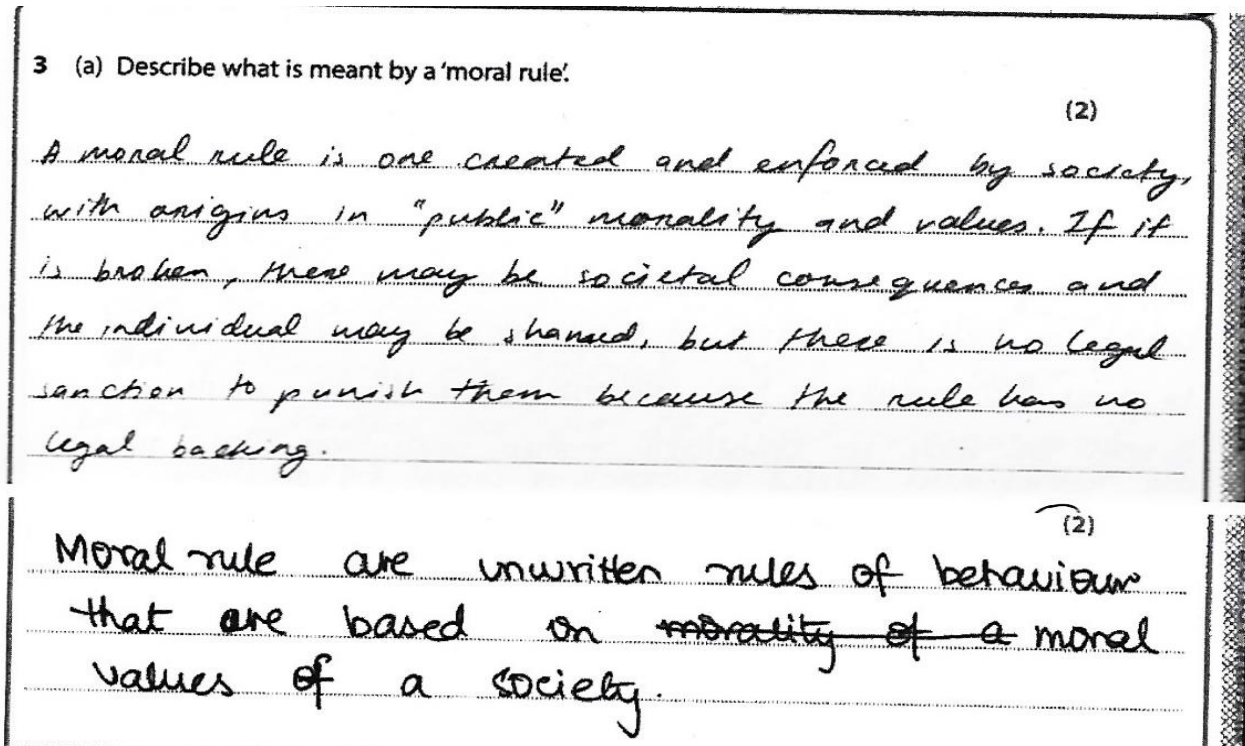 3 (a) Describe what is meant by a 'moral rule'.
(2)
A moral rule is one created and enforced by society,
with origins in "public" morality and values. If it
is broken, there may be societal consequences and
the individual may be shamed, but there is no legal
sanction to punish them because the rule has no
legal backing.
(2)
Moral rule are unwritten rules of behaviour
that are based on morality of a moral
values of a society.